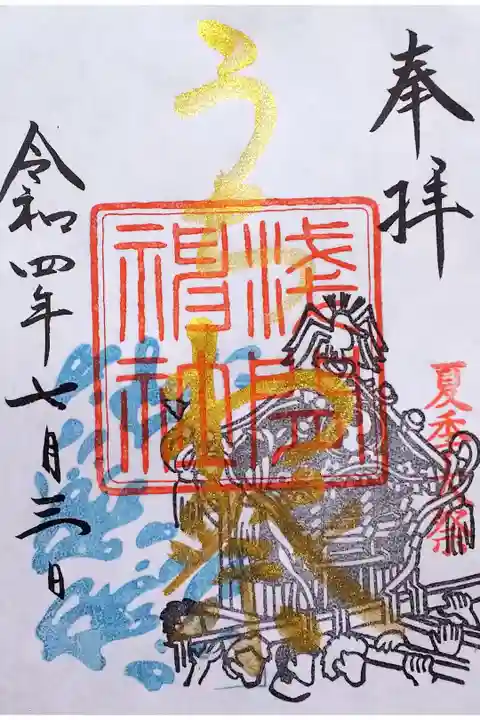 奉拝
夏季大祭
浅間
神社
令和四年七月三日